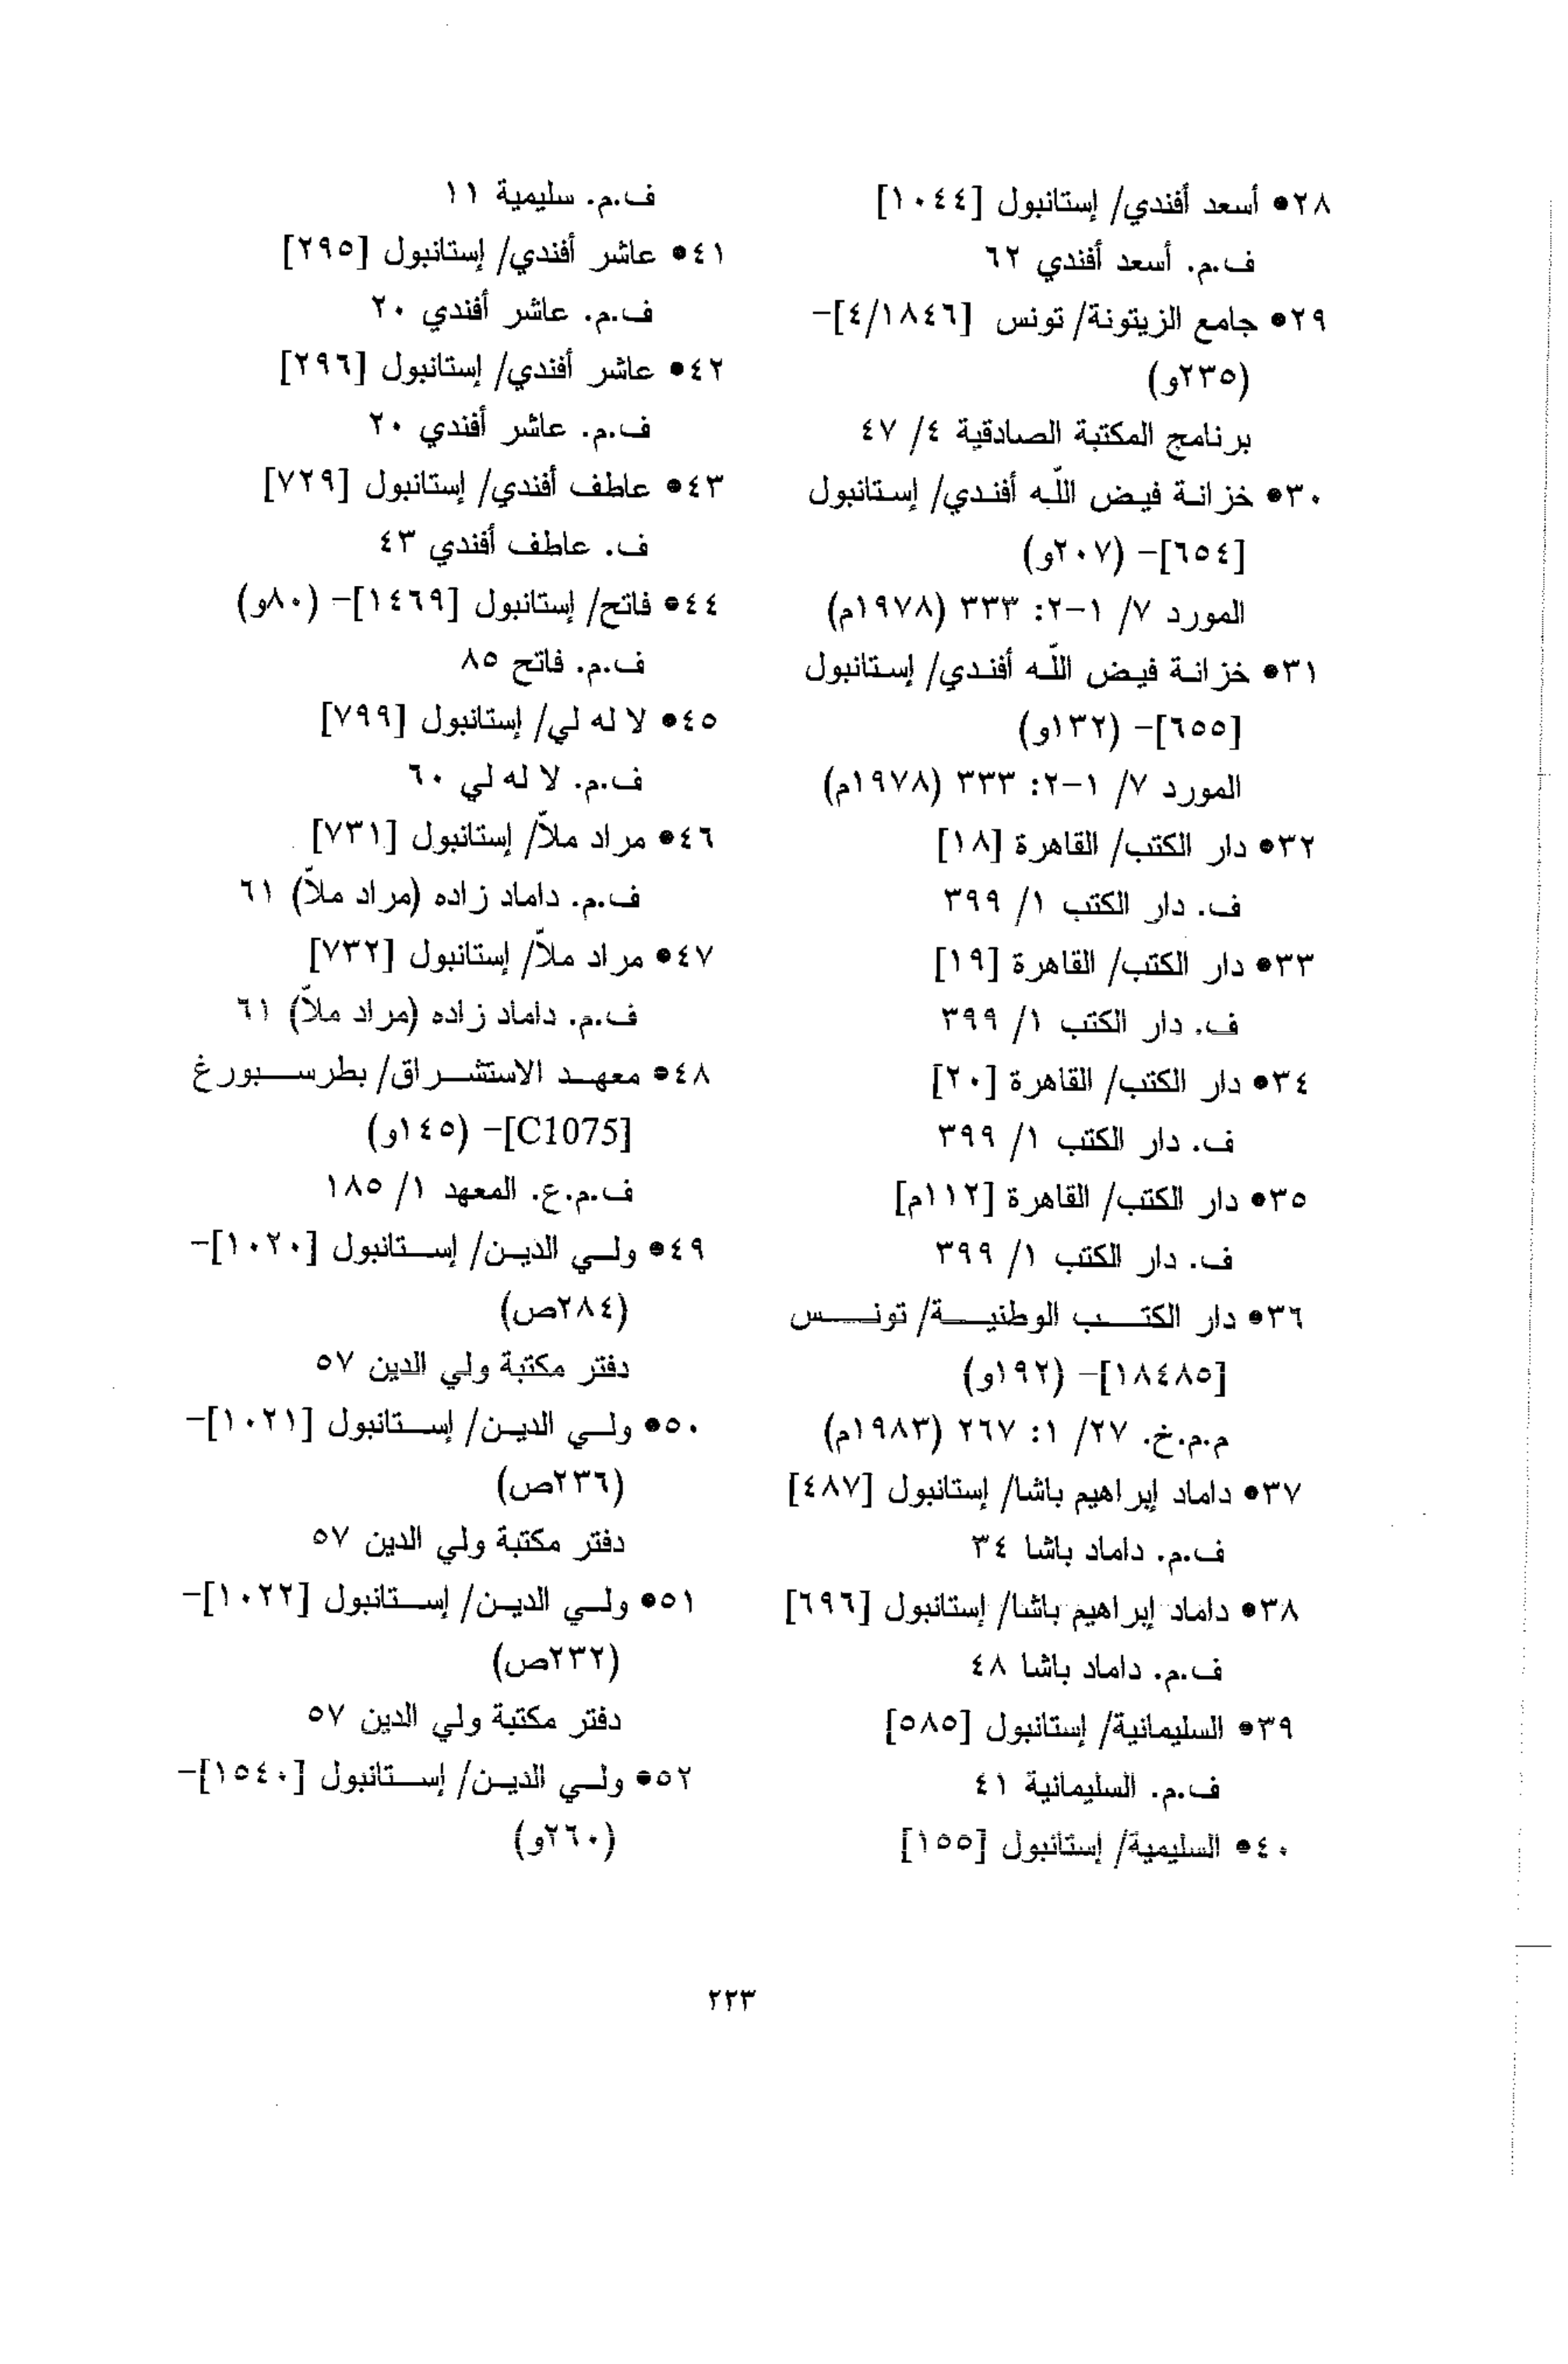 ٢٨• أسعد أفندي/ إستانبول [١٠٤٤]
ف.م. أسعد أفندي ٦٢
٢٩• جامع الزيتونة/ تونس [٤/١٨٤٦]-
(٢٣٥و)
برنامج المكتبة الصادقية ٤/ ٤٧
٣٠• خزانة فيض اللّه أفندي/ إستانبول
[٦٥٤]- (٢٠٧و)
المورد ٧/ ١-٢: ٣٣٣ (١٩٧٨م)
٣١• خزانة فيض اللّه أفندي/ إستانبول
[٦٥٥]- (١٣٢و)
المورد ٧/ ١-٢: ٣٣٣ (١٩٧٨م)
٣٢• دار الكتب/ القاهرة [١٨]
ف. دار الكتب ١/ ٣٩٩
٣٣• دار الكتب/ القاهرة [١٩]
ف. دار الكتب ١/ ٣٩٩
٣٤• دار الكتب/ القاهرة [٢٠]
ف. دار الكتب ١/ ٣٩٩
٣٥• دار الكتب/ القاهرة [١١٢م]
ف. دار الكتب ١/ ٣٩٩
٣٦• دار الكتب الوطنية/ تونس
[١٨٤٨٥]- (١٩٢و)
م.م.خ. ٢٧/ ١: ٢٦٧ (١٩٨٣م)
٣٧• داماد إبراهيم باشا/ إستانبول [٤٨٧]
ف.م. داماد باشا ٣٤
٣٨• داماد إبراهيم باشا/ إستانبول [٦٩٦]
ف.م. داماد باشا ٤٨
٣٩• السليمانية/ إستانبول [٥٨٥]
ف.م. السليمانية ٤١
٤٠• السليمية/ إستانبول [١٥٥]
ف.م. سليمية ١١
٤١• عاشر أفندي/ إستانبول [٢٩٥]
ف.م. عاشر أفندي ٢٠
٤٢• عاشر أفندي/ إستانبول [٢٩٦]
ف.م. عاشر أفندي ٢٠
٤٣• عاطف أفندي/ إستانبول [٧٢٩]
ف. عاطف أفندي ٤٣
٤٤• فاتح/ إستانبول [١٤٦٩]- (٨٠و)
ف.م. فاتح ٨٥
٤٥• لا له لي/ إستانبول [٧٩٩]
ف.م. لا له لي ٦٠
٤٦• مراد ملاّ/ إستانبول [٧٣١]
ف.م. داماد زاده (مراد ملاّ) ٦١
٤٧• مراد ملاّ/ إستانبول [٧٣٢]
ف.م. داماد زاده (مراد ملاّ) ٦١
٤٨• معهد الاستشراق/ بطرسبورغ
[C1075]- (١٤٥و)
ف.م.ع. المعهد ١/ ١٨٥
٤٩• ولي الدين/ إستانبول [١٠٢٠]-
(٢٨٤ص)
دفتر مكتبة ولي الدين ٥٧
٥٠• ولي الدين/ إستانبول [١٠٢١]-
(٢٣٦ص)
دفتر مكتبة ولي الدين ٥٧
٥١• ولي الدين/ إستانبول [١٠٢٢]-
(٢٣٢ص)
دفتر مكتبة ولي الدين ٥٧
٥٢• ولي الدين/ إستانبول [١٥٤٠]-
(٢٦٠و)
٢٢٣